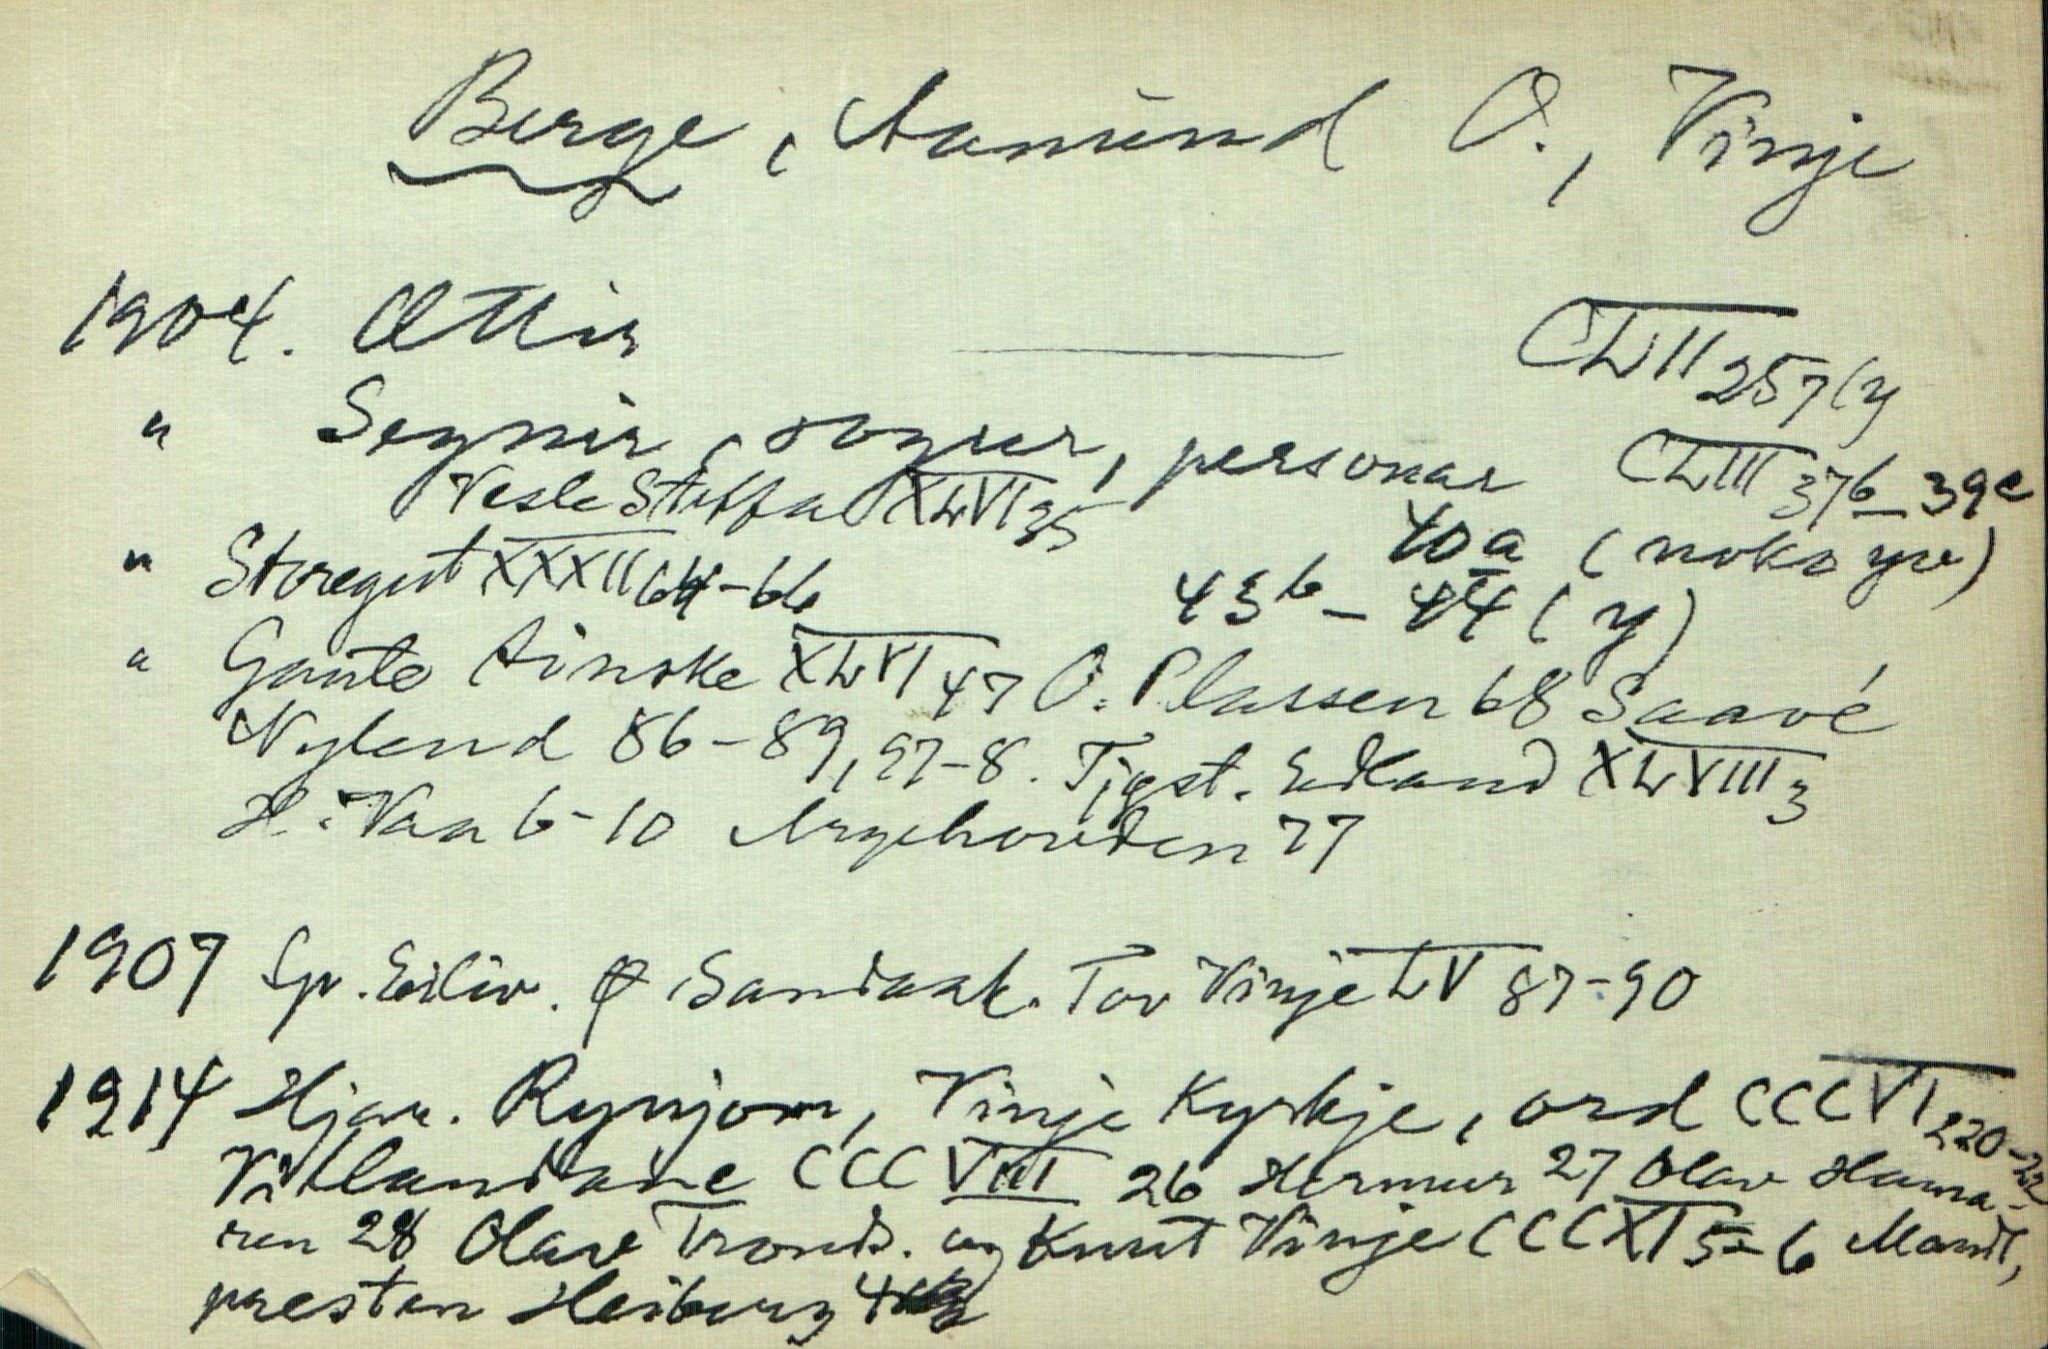 Berge, Aamund O., Vinje
1904. Ættir CLII 257 (y
" Segnir, sogur, personar CLIII 37b–39c
Vesle Steffa XLVI 35 40a (noko yv)
" Storegut XXXII 64–66 43b – 44 (y)
" Gaute Ainske XLVI 47 O. Plassen 68 Saavé
Nyland 86–89, 97–8. Tjgst. Edland XLVIII 3
H. Vaa 6–10 Argehovden 77
1907 Sp. Eiliv. Sandaak. Tov Vinje LV 87–90
1914 Hjar. Rynjom, Vinje Kyrkje, ord CCCVI 220–22
Vitlandane CCCVIII 26 Hermur 27 Olav Hama-
ren 28 Olav Tronds. og Knut Vinje CCCXI 5–6 Mandt,
presten Heiberg